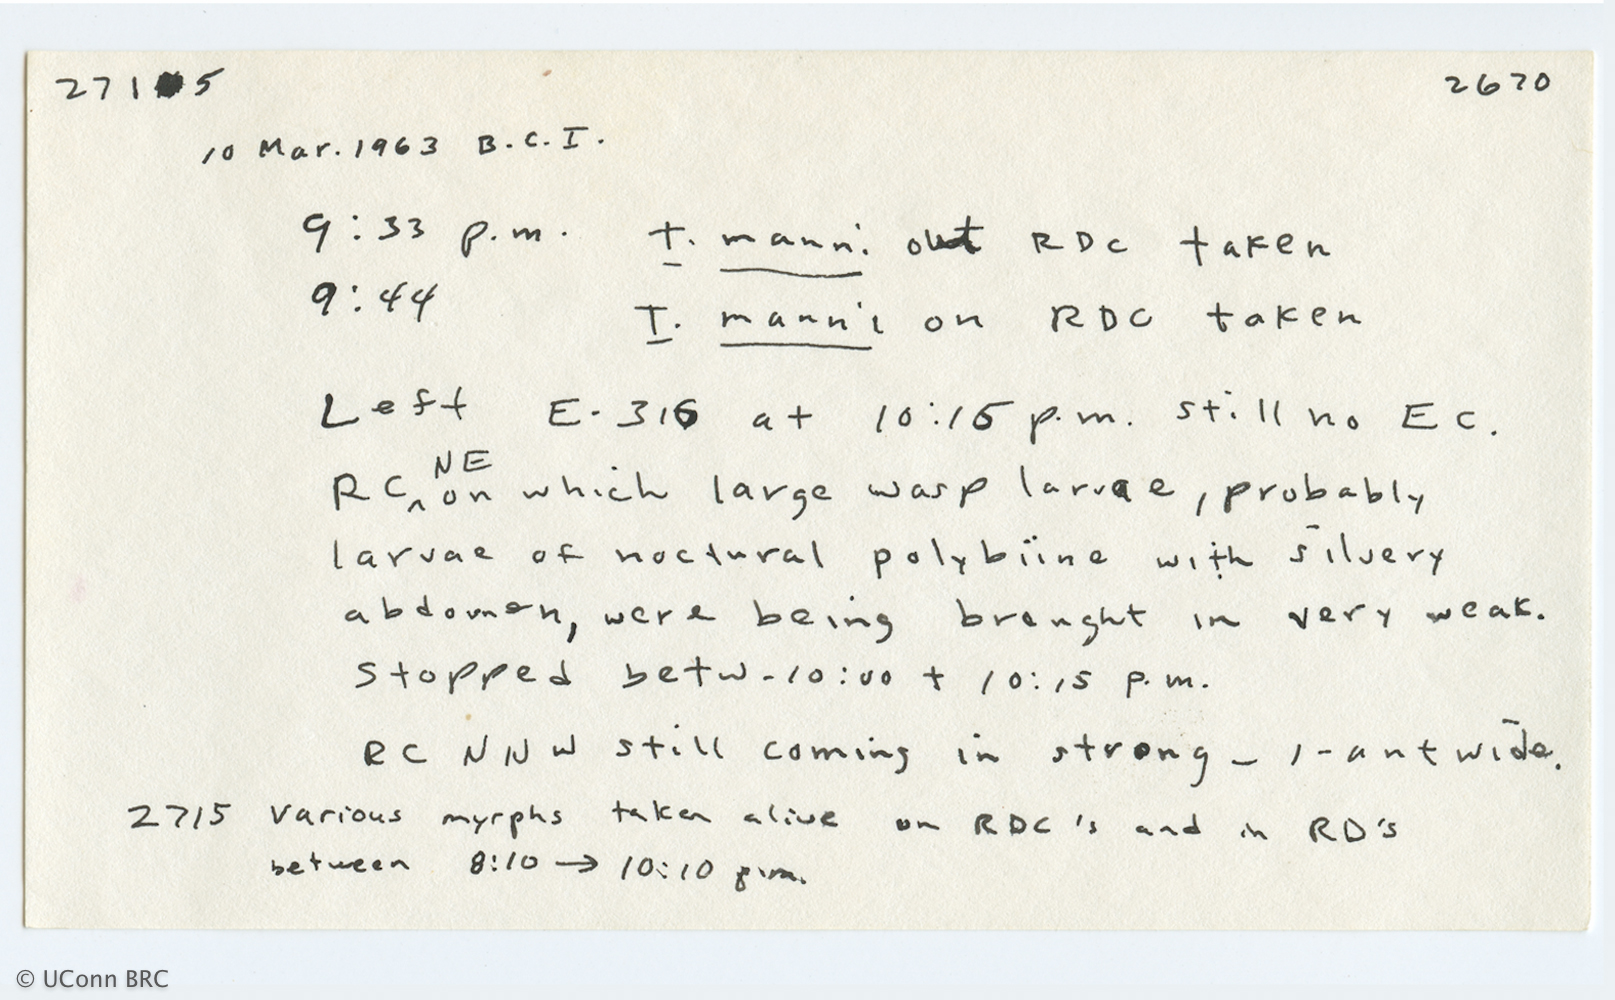 2715
2670
10 Mar. 1963 B.C.I.
9:33 p.m. T. manni out RDC taken
9:44 T. manni on RDC taken
Left E-316 at 10:15 p.m. still no EC.
NE
RC ^ on which large wasp larvae, probably
larvae of noctural polybiine with silvery
abdomen, were being brought in very weak.
Stopped betw. 10:00 + 10:15 p.m.
RC NNW still coming in strong – 1-ant wide.
2715 Various myrphs taken alive on RDC's and in RD's
between 8:10 → 10:10 p.m.
© UConn BRC